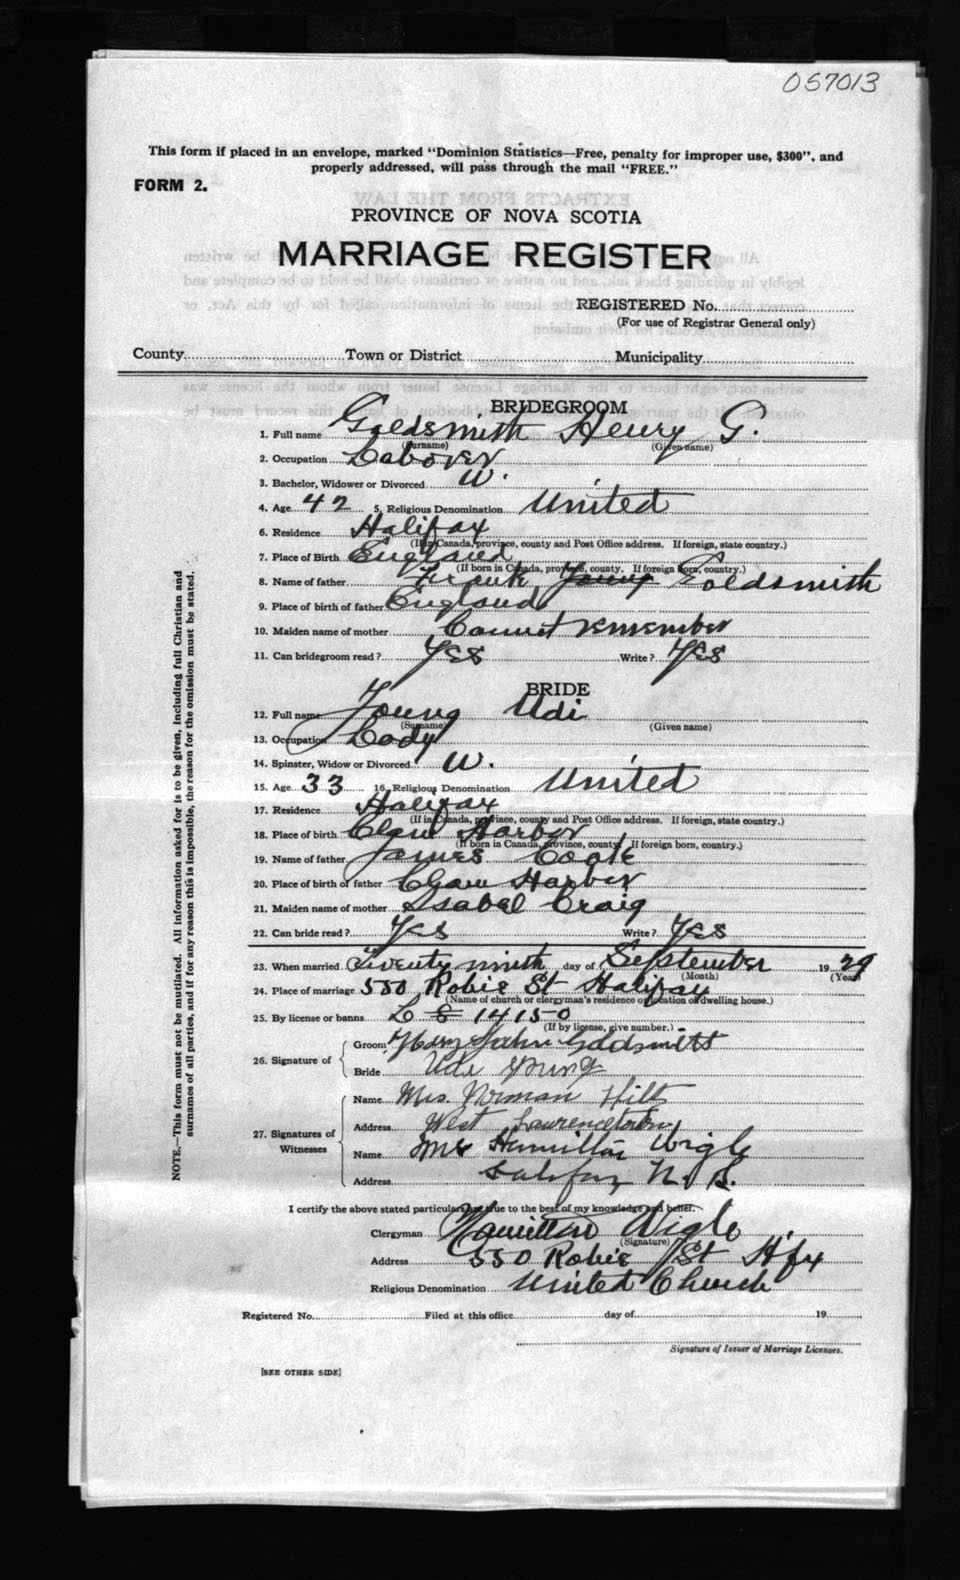 057013
This form if placed in an envelope, marked "Dominion Statistics—Free, penalty for improper use, $300", and
properly addressed, will pass through the mail "FREE."
FORM 2.
PROVINCE OF NOVA SCOTIA
MARRIAGE REGISTER
REGISTERED No.
(For use of Registrar General only)
County Town or District Municipality
BRIDEGROOM
1. Full name Goldsmith Henry G.
(Surname) (Given name)
2. Occupation Laborer
3. Bachelor, Widower or Divorced W.
4. Age 42 5. Religious Denomination United
6. Residence Halifax
(If in Canada, province, county and Post Office address. If foreign, state country.)
7. Place of Birth England
(If born in Canada, province, county. If foreign born, country.)
8. Name of father Frank Young Goldsmith
9. Place of birth of father England
10. Maiden name of mother Cannot remember
11. Can bridegroom read? Yes Write? Yes
BRIDE
12. Full name Young Udi
(Surname) (Given name)
13. Occupation Lady
14. Spinster, Widow or Divorced W.
15. Age 33 16. Religious Denomination United
17. Residence Halifax
(If in Canada, province, county and Post Office address. If foreign, state country.)
18. Place of birth Clam Harbor
(If born in Canada, province, county. If foreign born, country.)
19. Name of father James Cook
20. Place of birth of father Clam Harbor
21. Maiden name of mother Isabel Craig
22. Can bride read? Yes Write? Yes
23. When married Twenty ninth day of September 19 29
(Month) (Year)
24. Place of marriage 550 Robie St Halifax
(Name of church or clergyman's residence or location of dwelling house.)
25. By license or banns L 14150
(If by license, give number.)
26. Signature of
Groom John Goldsmith
Bride Udi Young
27. Signatures of Witnesses
Name Mrs. Norman Hilts
Address West Lawrencetown
Name Mrs Hamilton Wigle
Address Halifax N. S.
I certify the above stated particulars are true to the best of my knowledge and belief.
Clergyman Hamilton Wigle
(Signature)
Address 550 Robie St Hfx
Religious Denomination United Church
Registered No. Filed at this office day of 19
Signature of Issuer of Marriage Licenses.
[SEE OTHER SIDE]
NOTE.—This form must not be mutilated. All information asked for is to be given, including full Christian and
surnames of all parties, and if for any reason this is impossible, the reason for the omission must be stated.